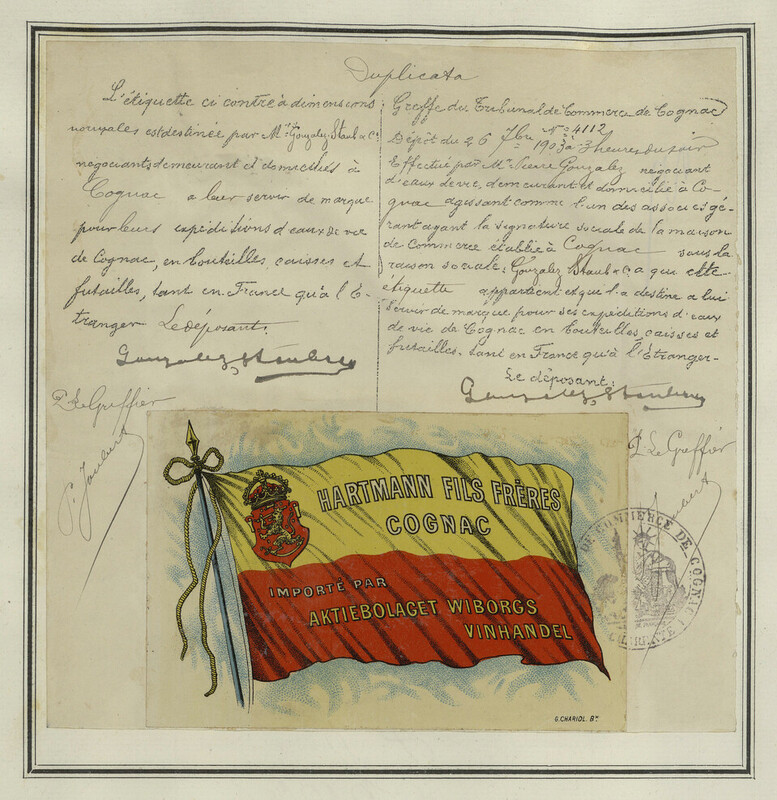 Duplicata
L'étiquette ci contre à dimensions
nouvales est destinée par Mrs Gonzalez, Staub & Co
négociants demeurant et domiciliés à
Cognac a leur servir de marque
pour leurs expéditions d'eaux de vie
de Cognac, en bouteilles, caisses et
futailles, tant en France qu'à l'É-
tranger Le déposant.
Gonzalez, Staub & Co
P. Le Greffier
P. Joubert
Greffe du Tribunal de Commerce de Cognac
No 4112
Dépôt du 26 7bre 1903 à 3 heures du soir
Effectué par Mr Pierre Gonzalez négociant
d'eaux de vie, demeurant et domicilié à Co-
gnac agissant comme l'un des associés gé-
rant ayant la signature sociale de la maison
de Commerce établie à Cognac sous la
raison sociale, Gonzalez, Staub & Co a qui cette
étiquette appartient et que l'a destine a lui
servir de marque pour ses expéditions d'eaux
de vie de Cognac en bouteilles, caisses et
futailles. tant en France qu'à l'Étranger-
Le déposant.
Gonzalez, Staub & Co
P. Le Greffier
Joubert
HARTMANN FILS FRÈRES
COGNAC
IMPORTÉ PAR
AKTIEBOLAGET WIBORGS
VINHANDEL
G. CHARIOL. Bx
DE COMMERCE DE COGNAC
CHARENTE